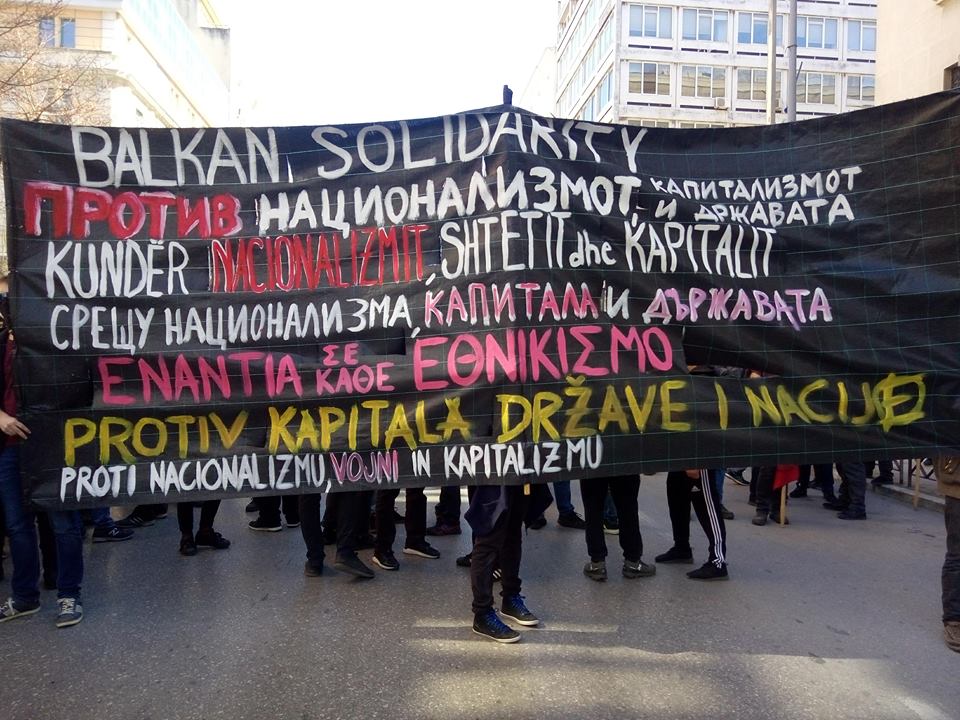 BALKAN SOLIDARITY
ПРОТИВ НАЦИОНАЛИЗМОТ, КАПИТАЛИЗМОТ И ДРЖАВАТА
KUNDËR NACIONALIZMIT, SHTETIT dhe KAPITALIT
СРЕЩУ НАЦИОНАЛИЗМА, КАПИТАЛА И ДЪРЖАВАТА
ΕΝΑΝΤΙΑ ΣΕ ΚΑΘΕ ΕΘΝΙΚΙΣΜΟ
PROTIV KAPITALA DRŽAVE I NACIJE
PROTI NACIONALIZMU, VOJNI IN KAPITALIZMU